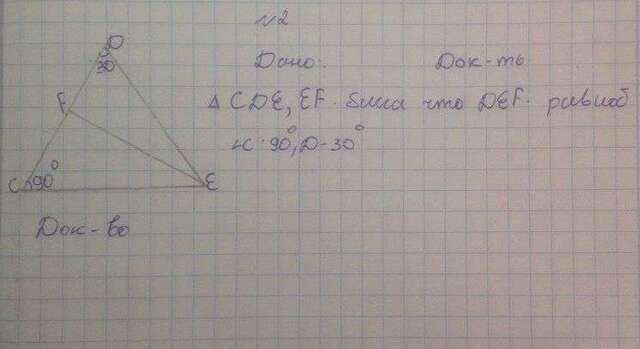 N2
Дано:
Док-ть
Δ CDE, EF-бисса что DEF- равноб
∠C-90°, D-30°
D
30
F
C 90° E
Док-во